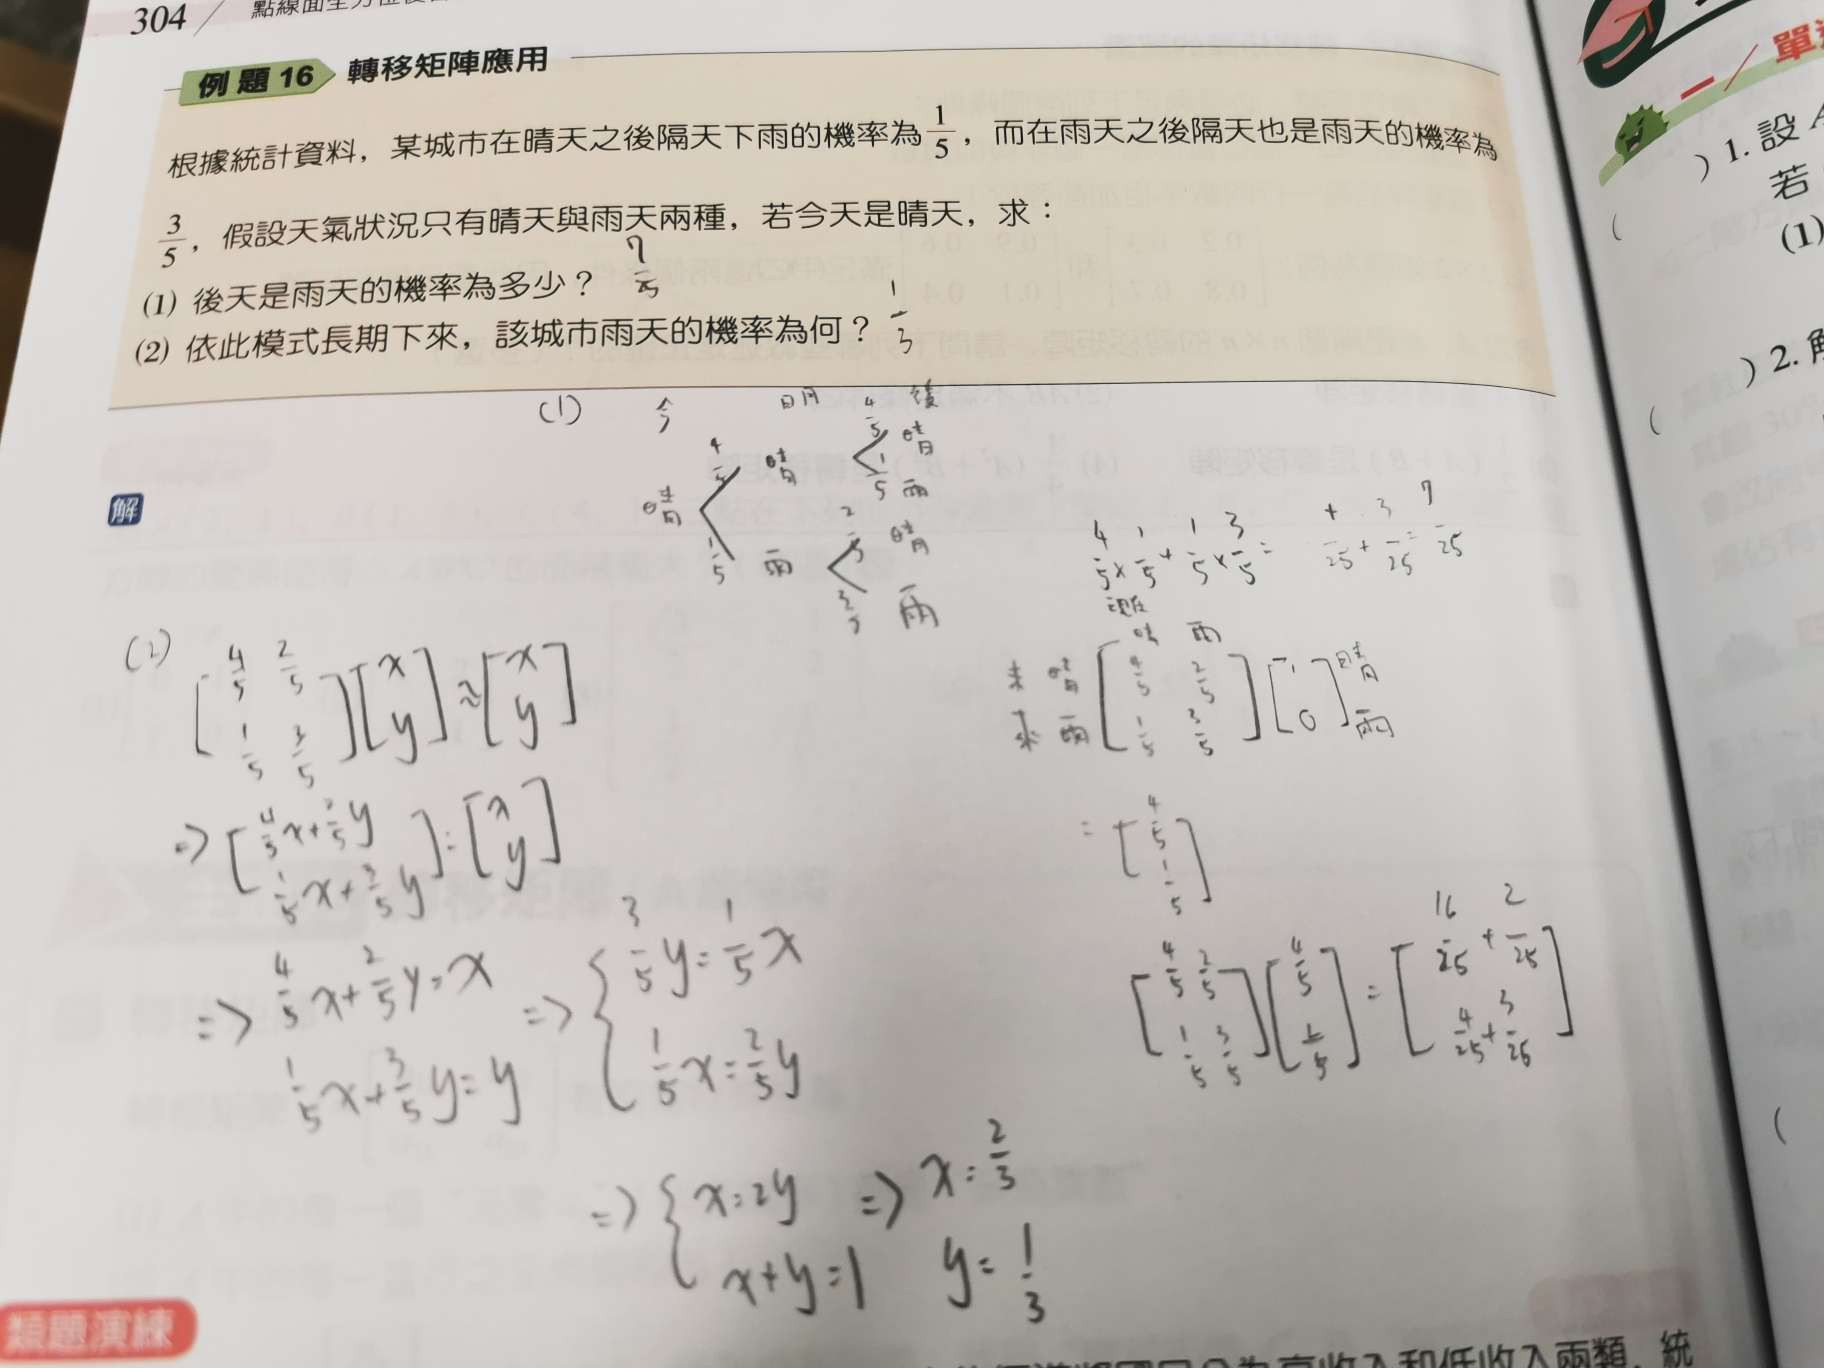 304
例題16 轉移矩陣應用
根據統計資料，某城市在晴天之後隔天下雨的機率為 1/5，而在雨天之後隔天也是雨天的機率為
3/5，假設天氣狀況只有晴天與雨天兩種，若今天是晴天，求：
(1) 後天是雨天的機率為多少？ 7/25
(2) 依此模式長期下來，該城市雨天的機率為何？ 1/3
解
(1) 今 明 後
晴 4/5 晴 4/5 晴
1/5 雨
1/5 雨 2/5 晴
3/5 雨
4/5 × 1/5 + 1/5 × 3/5 = 4/25 + 3/25 = 7/25
現在
晴 雨
未 晴 [4/5 2/5] [1] 晴
來 雨 [1/5 3/5] [0] 雨
= [4/5]
[1/5]
[4/5 2/5] [4/5] = [16/25 + 2/25]
[1/5 3/5] [1/5] [4/25 + 3/25]
(2)
[4/5 2/5] [x] ≈ [x]
[1/5 3/5] [y] [y]
⇒ [4/5x + 2/5y] = [x]
[1/5x + 3/5y] [y]
⇒ 4/5x + 2/5y = x ⇒ { 3/5y = 1/5x
1/5x + 3/5y = y 1/5x = 2/5y
⇒ { x = 2y ⇒ x = 2/3
x + y = 1 y = 1/3
類題演練
高收入和低收入兩類，統
一
1. 設
若
(1)
2.